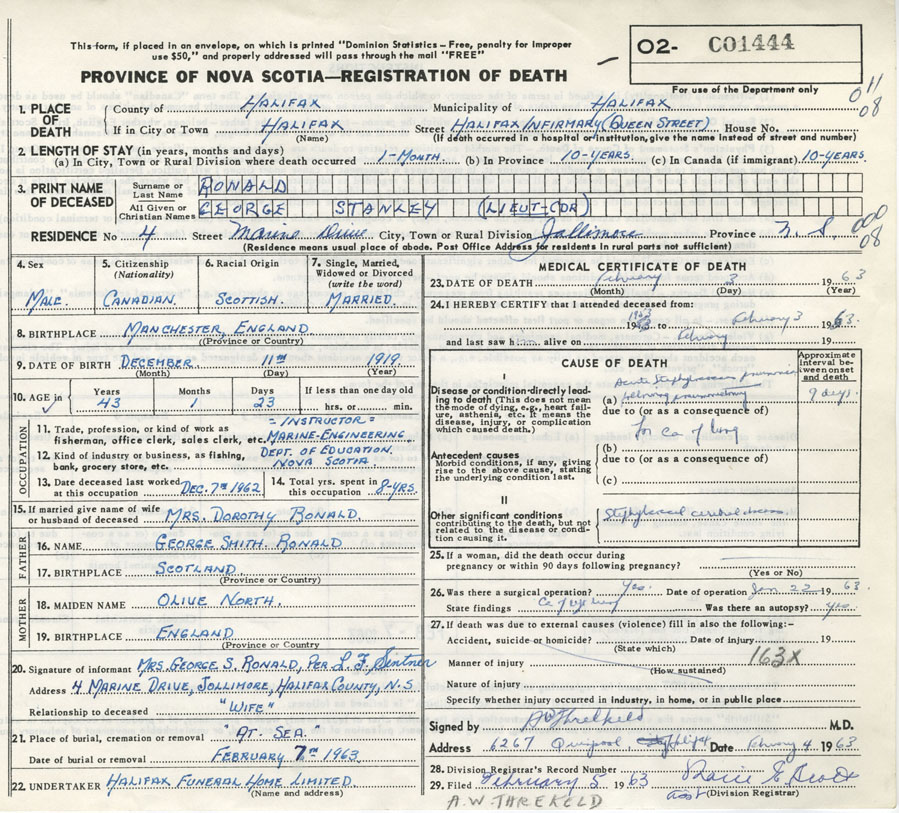 This form, if placed in an envelope, on which is printed "Dominion Statistics – Free, penalty for improper
use $50," and properly addressed will pass through the mail "FREE"
PROVINCE OF NOVA SCOTIA—REGISTRATION OF DEATH
02- C01444
For use of the Department only
011
08
1. PLACE OF DEATH
County of HALIFAX Municipality of HALIFAX
If in City or Town HALIFAX Street HALIFAX INFIRMARY (QUEEN STREET) House No.
(Name) (If death occurred in a hospital or institution, give the name instead of street and number)
2. LENGTH OF STAY (in years, months and days)
(a) In City, Town or Rural Division where death occurred 1-MONTH. (b) In Province 10-YEARS. (c) In Canada (if immigrant) 10-YEARS.
3. PRINT NAME OF DECEASED
Surname or Last Name RONALD
All Given or Christian Names GEORGE STANLEY (LIEUT-CDR)
RESIDENCE No 4 Street Marine Drive City, Town or Rural Division Jollimore Province N.S.
000
08
(Residence means usual place of abode. Post Office Address for residents in rural parts not sufficient)
4. Sex
MALE.
5. Citizenship (Nationality)
CANADIAN.
6. Racial Origin
SCOTTISH.
7. Single, Married, Widowed or Divorced (write the word)
MARRIED.
8. BIRTHPLACE MANCHESTER, ENGLAND.
(Province or Country)
9. DATE OF BIRTH DECEMBER. 11TH 1919
(Month) (Day) (Year)
10. AGE in Years 43 Months 1 Days 23 If less than one day old hrs. or min.
OCCUPATION
11. Trade, profession, or kind of work as fisherman, office clerk, sales clerk, etc. =INSTRUCTOR= MARINE-ENGINEERING
12. Kind of industry or business, as fishing, bank, grocery store, etc. DEPT. OF EDUCATION. NOVA SCOTIA.
13. Date deceased last worked at this occupation DEC. 7TH 1962
14. Total yrs. spent in this occupation 8-YRS.
15. If married give name of wife or husband of deceased MRS. DOROTHY RONALD.
FATHER
16. NAME GEORGE SMITH. RONALD
17. BIRTHPLACE SCOTLAND
(Province or Country)
MOTHER
18. MAIDEN NAME OLIVE NORTH.
19. BIRTHPLACE ENGLAND
(Province or Country
20. Signature of informant MRS. GEORGE S. RONALD, PER L. F.
Address 4 MARINE DRIVE, JOLLIMORE, HALIFAX COUNTY, N.S
Relationship to deceased "WIFE"
21. Place of burial, cremation or removal "AT. SEA."
Date of burial or removal FEBRUARY 7TH 1963
22. UNDERTAKER HALIFAX FUNERAL HOME LIMITED.
(Name and address)
MEDICAL CERTIFICATE OF DEATH
23. DATE OF DEATH February 3 1963
(Month) (Day) (Year)
24. I HEREBY CERTIFY that I attended deceased from:
1963 to February 3 1963.
and last saw him alive on February
CAUSE OF DEATH
Approximate interval between onset and death
I
Disease or condition directly leading to death (This does not mean the mode of dying, e.g., heart failure, asthenia, etc. It means the disease, injury, or complication which caused death.)
Acute Staphylococcus
(a) 9 days.
due to (or as a consequence of)
for Ca of lung
Antecedent causes
Morbid conditions, if any, giving rise to the above cause, stating the underlying condition last.
(b)
due to (or as a consequence of)
(c)
II
Other significant conditions contributing to the death, but not related to the disease or condition causing it.
25. If a woman, did the death occur during pregnancy or within 90 days following pregnancy?
(Yes or No)
26. Was there a surgical operation? Yes. Date of operation Jan 22 1963.
State findings Ca of lung Was there an autopsy? yes.
27. If death was due to external causes (violence) fill in also the following:–
Accident, suicide or homicide? Date of injury 19
(State which)
163X
Manner of injury
(How sustained)
Nature of injury
Specify whether injury occurred in industry, in home, or in public place
Signed by AW Threlkeld M.D.
Address 6267 Quinpool Date February 4 1963
28. Division Registrar's Record Number
29. Filed February 5 1963
Asst (Division Registrar)
A.W THREKELD